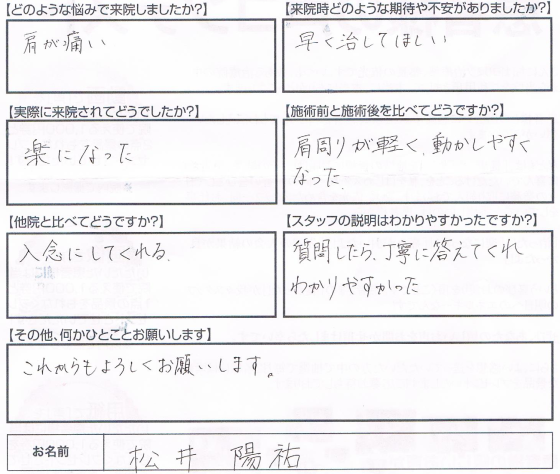 【どのような悩みで来院しましたか?】
肩が痛い
【来院時どのような期待や不安がありましたか?】
早く治してほしい
【実際に来院されてどうでしたか?】
楽になった
【施術前と施術後を比べてどうですか?】
肩周りが軽く、動かしやすく
なった。
【他院と比べてどうですか?】
入念にしてくれる。
【スタッフの説明はわかりやすかったですか?】
質問したら、丁寧に答えてくれ
わかりやすかった
【その他、何かひとことお願いします】
これからもよろしくお願いします。
お名前
松井 陽祐